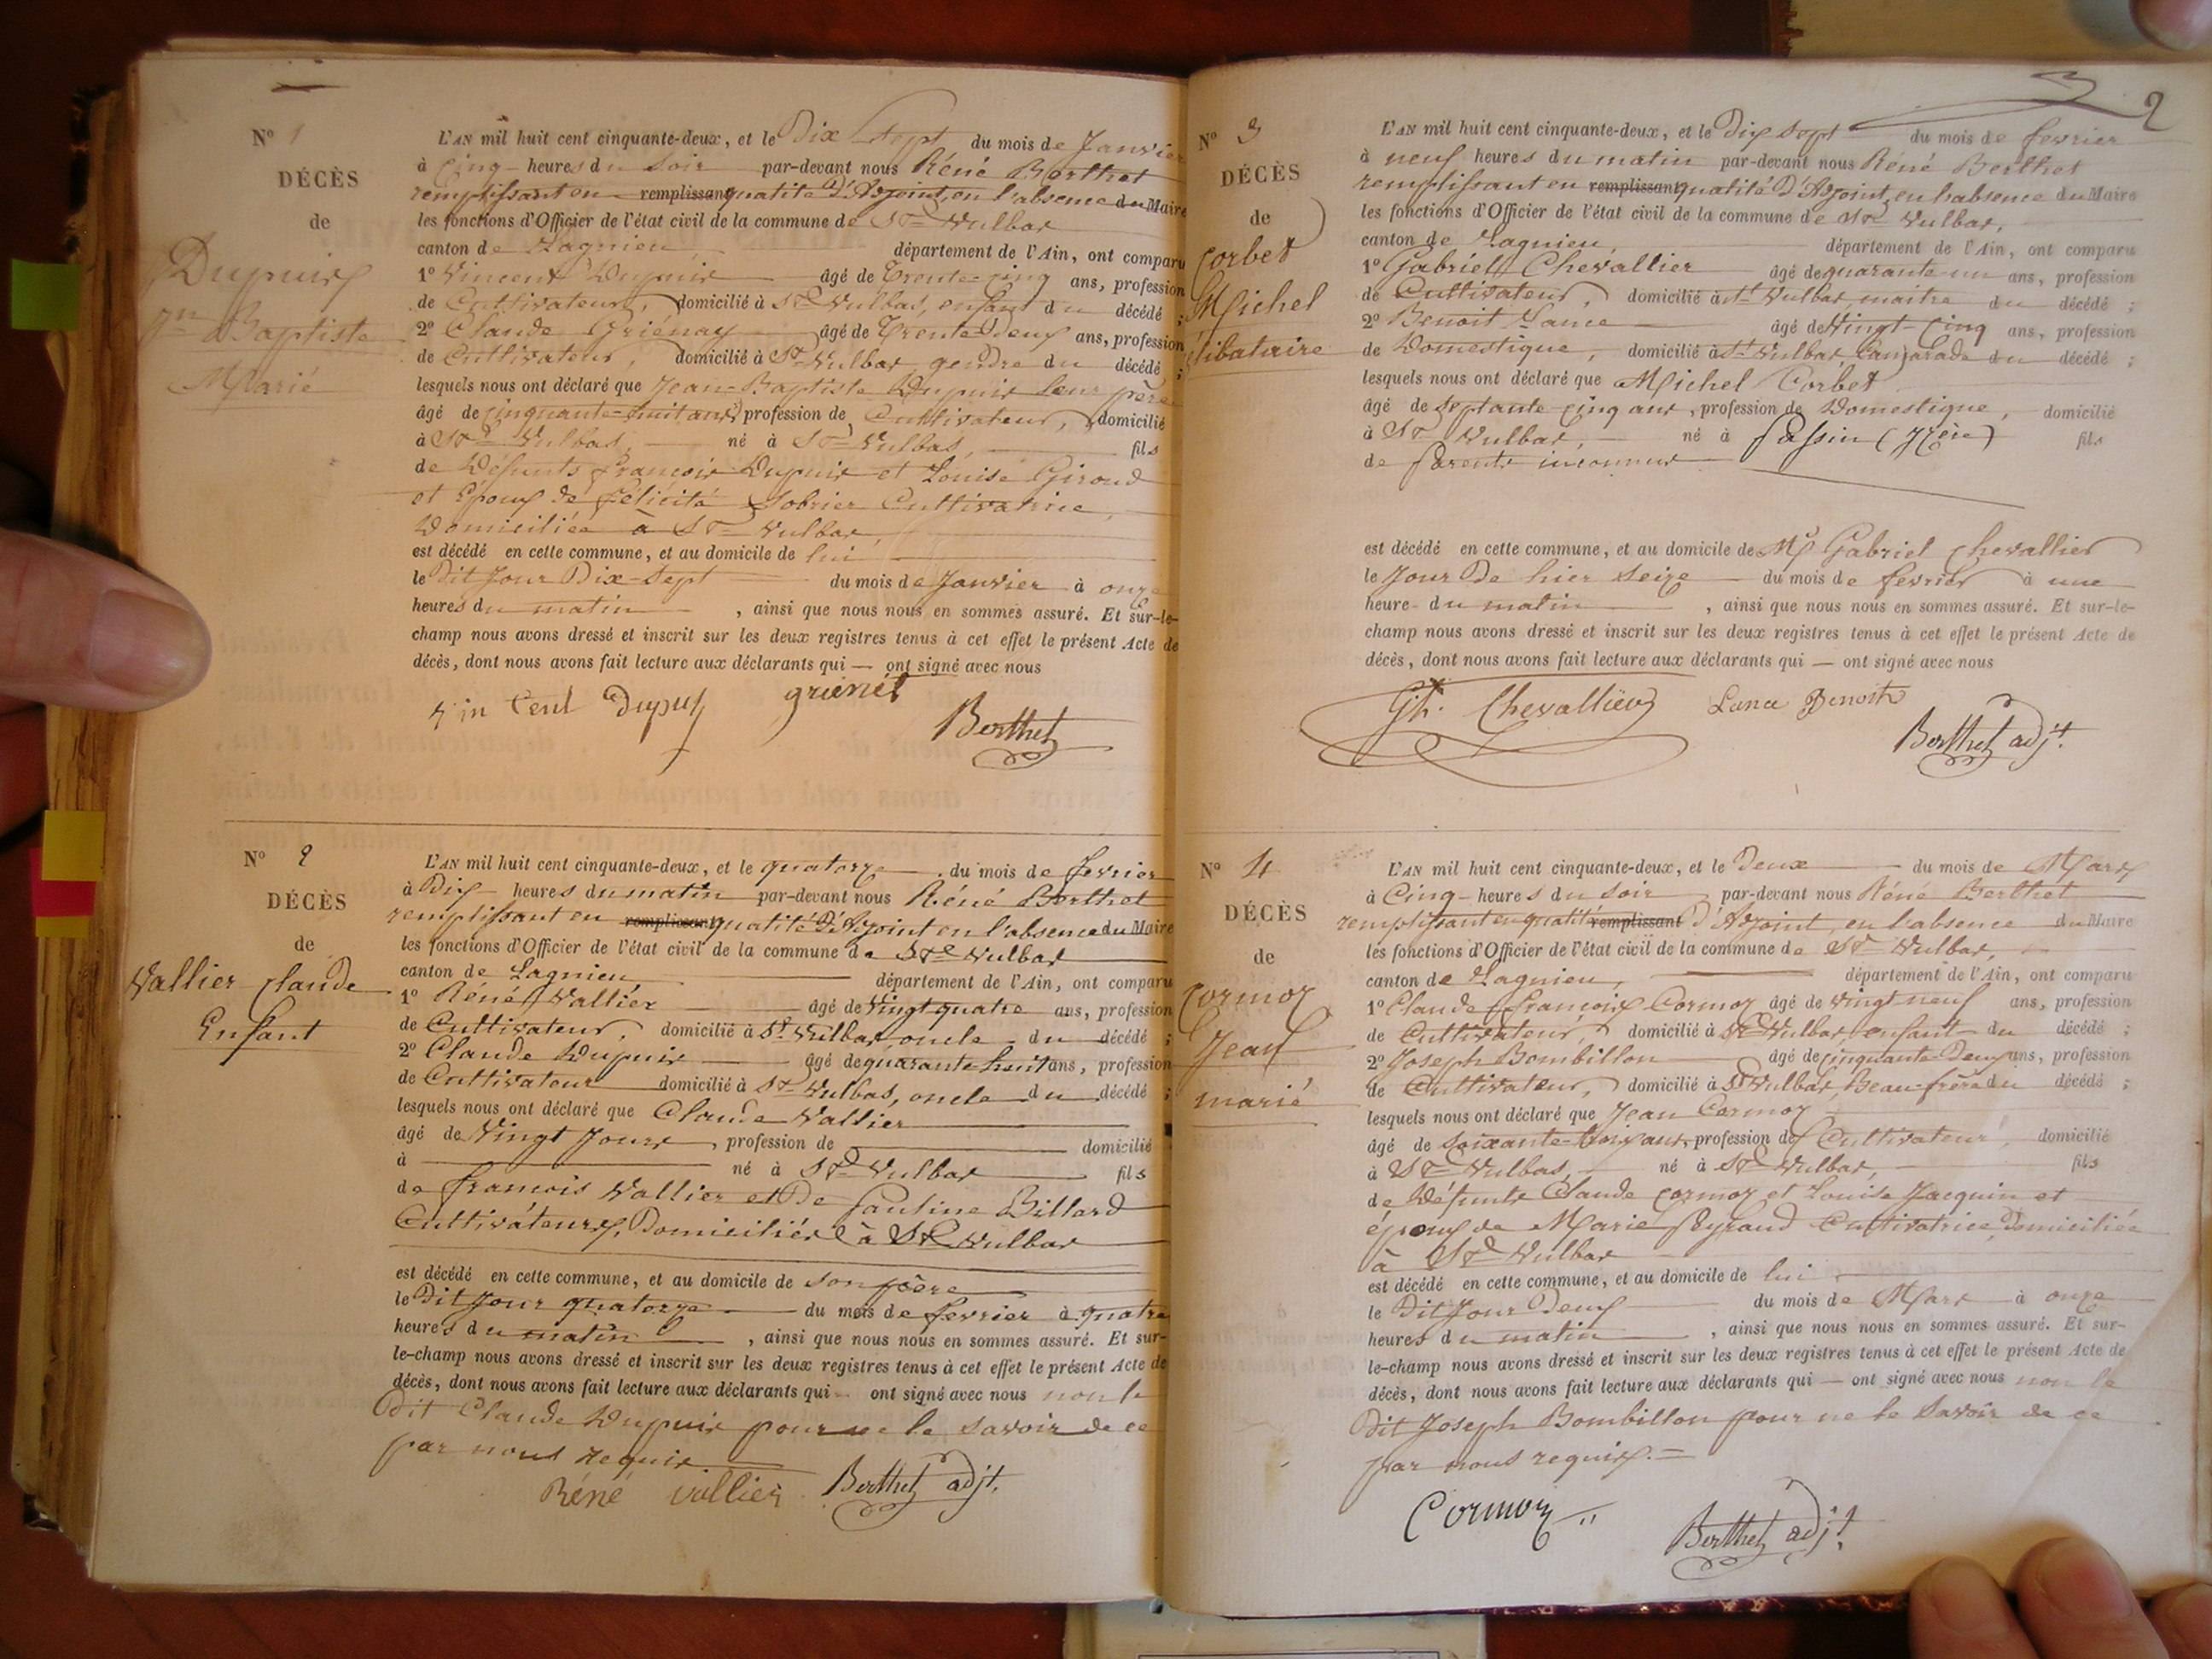 N° 1
DÉCÈS
de
Dupuis
Jn Baptiste
Marié
L'AN mil huit cent cinquante-deux, et le Dix sept du mois de Janvier
à Cinq heures du soir par-devant nous Réné Berthet
remplissant en remplissant qualité d'Adjoint, en l'absence du Maire
les fonctions d'Officier de l'état civil de la commune de St Vulbas
canton de Lagnieu département de l'Ain, ont comparu
1° Vincent Dupuis âgé de Trente-Cinq ans, profession
de Cultivateur, domicilié à St Vulbas, enfant du décédé ;
2° Claude Griénay âgé de Trente-Deux ans, profession
de Cultivateur, domicilié à St Vulbas, gendre du décédé ;
lesquels nous ont déclaré que Jean-Baptiste Dupuis leur père
âgé de cinquante-huit ans, profession de Cultivateur, domicilié
à St Vulbas, né à St Vulbas, fils
de Défunts François Dupuis et Louise Giroud
et Époux de Félicité Sobrier Cultivatrice,
Domiciliée à St Vulbas,
est décédé en cette commune, et au domicile de lui
le Dit Jour Dix-Sept du mois de Janvier à onze
heures du matin, ainsi que nous nous en sommes assuré. Et sur-le-
champ nous avons dressé et inscrit sur les deux registres tenus à cet effet le présent Acte de
décès, dont nous avons fait lecture aux déclarants qui — ont signé avec nous
vin Cent Dupuy griénét
Berthet
N° 2
DÉCÈS
de
Vallier Claude
Enfant
L'AN mil huit cent cinquante-deux, et le quatorze du mois de fevrier
à Dix heures du matin par-devant nous Réné Berthet
remplissant en remplissant qualité d'Adjoint en l'absence du Maire
les fonctions d'Officier de l'état civil de la commune de St Vulbas
canton de Lagnieu département de l'Ain, ont comparu
1° Réné Vallier âgé de Vingt quatre ans, profession
de Cultivateur, domicilié à St Vulbas, oncle du décédé ;
2° Claude Dupuis âgé de quarante-huit ans, profession
de Cultivateur domicilié à St Vulbas, oncle du décédé ;
lesquels nous ont déclaré que Claude Vallier
âgé de Vingt Jours, profession de domicilié
à né à St Vulbas fils
de francois Vallier et De Pauline Billard
Cultivateurs, Domiciliés à St Vulbas
est décédé en cette commune, et au domicile de son père
le Dit Jour quatorze du mois de fevrier à quatre
heures du matin, ainsi que nous nous en sommes assuré. Et sur-
le-champ nous avons dressé et inscrit sur les deux registres tenus à cet effet le présent Acte de
décès, dont nous avons fait lecture aux déclarants qui — ont signé avec nous non le
Dit Claude Dupuis pour ne le savoir de ce
par nous requis
Réné vallier Berthet adjt.
2
N° 3
DÉCÈS
de
Corbet
Michel
Célibataire
L'AN mil huit cent cinquante-deux, et le Dix sept du mois de fevrier
à neuf heures du matin par-devant nous Réné Berthet
remplissant en remplissant qualité D'Adjoint, en l'absence du Maire
les fonctions d'Officier de l'état civil de la commune de St Vulbas,
canton de Lagnieu, département de l'Ain, ont comparu
1° Gabriel Chevallier âgé de quarante un ans, profession
de Cultivateur, domicilié à St Vulbas, maitre du décédé ;
2° Benoit Lance âgé de Vingt-Cinq ans, profession
de Domestique, domicilié à St Vulbas, Camarade du décédé ;
lesquels nous ont déclaré que Michel Corbet
âgé de septante-Cinq ans, profession de Domestique, domicilié
à St Vulbas, né à Passin (Isère) fils
de Parents inconnus
est décédé en cette commune, et au domicile de Mr Gabriel Chevallier
le Jour De hier Seize du mois de fevrier à une
heure du matin, ainsi que nous nous en sommes assuré. Et sur-le-
champ nous avons dressé et inscrit sur les deux registres tenus à cet effet le présent Acte de
décès, dont nous avons fait lecture aux déclarants qui — ont signé avec nous
Gl. Chevallier Lance Benoit
Berthet adjt.
N° 4
DÉCÈS
de
Cormoz
Jean
marié
L'AN mil huit cent cinquante-deux, et le Deux du mois de Mars
à Cinq heures du soir par-devant nous Réné Berthet
remplissant en qualité remplissant D'Adjoint, en l'absence du Maire
les fonctions d'Officier de l'état civil de la commune de St Vulbas,
canton de Lagnieu, département de l'Ain, ont comparu
1° Claude François Cormoz âgé de vingt neuf ans, profession
de Cultivateur, domicilié à St Vulbas, enfant du décédé ;
2° Joseph Bombillon âgé de cinquante-Deux ans, profession
de Cultivateur, domicilié à St Vulbas, Beau-frère du décédé ;
lesquels nous ont déclaré que Jean Cormoz
âgé de soixante- ans, profession de Cultivateur, domicilié
à St Vulbas, né à St Vulbas, fils
de Défunts Claude Cormoz et Louise Jacquin et
époux de Marie Peyraud Cultivatrice, Domiciliée
à St Vulbas
est décédé en cette commune, et au domicile de lui
le Dit Jour Deux du mois de Mars à onze
heures du matin, ainsi que nous nous en sommes assuré. Et sur-
le-champ nous avons dressé et inscrit sur les deux registres tenus à cet effet le présent Acte de
décès, dont nous avons fait lecture aux déclarants qui — ont signé avec nous non le
Dit Joseph Bombillon pour ne le savoir de ce
par nous requis.
Cormoz
Berthet adjt.